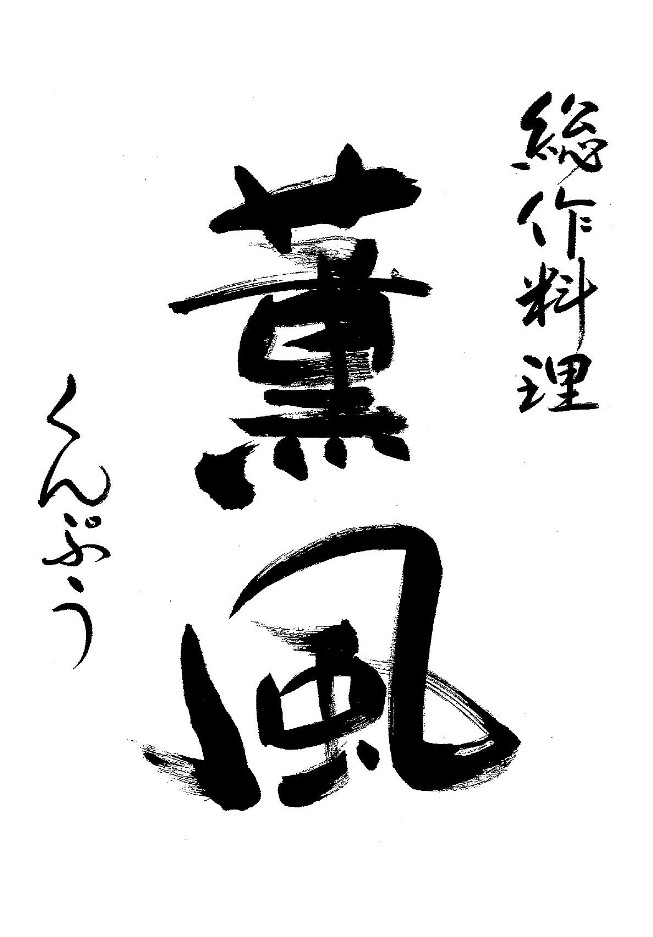 総作料理
薫風
くんぷう